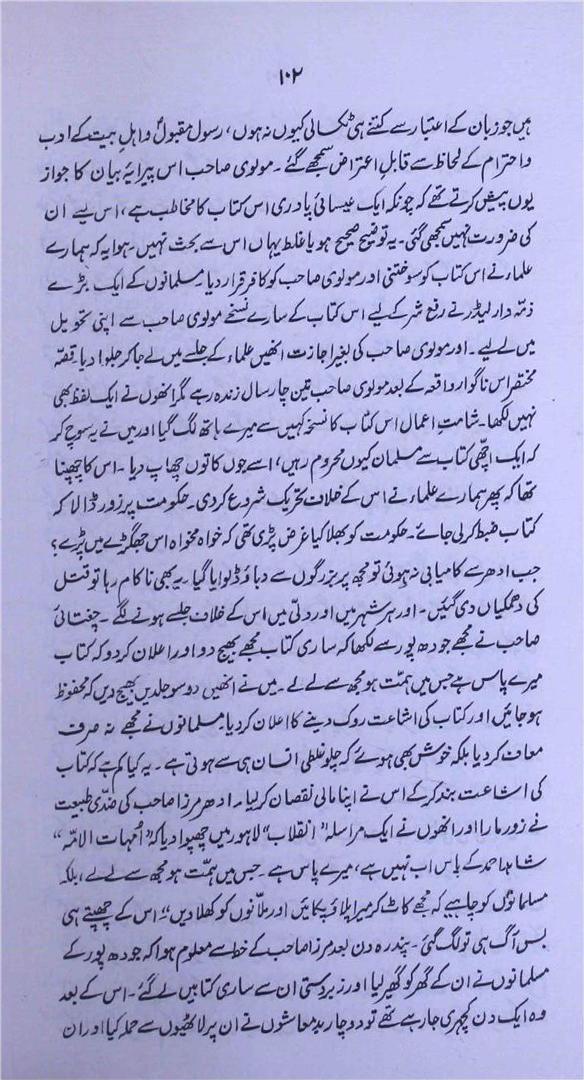 ۱۰۲
ہیں جو زبان کے اعتبار سے کتنے ہی ٹکسالی کیوں نہ ہوں، رسول مقبولؐ و اہلِ بیت کے ادب
و احترام کے لحاظ سے قابلِ اعتراض سمجھے گئے۔ مولوی صاحب اس پیرایۂ بیان کا جواز
یوں پیش کرتے تھے کہ چونکہ ایک عیسائی پادری اس کتاب کا مخاطب ہے، اس لیے ان
کی ضرورت نہیں سمجھی گئی۔ یہ توضیح صحیح ہو یا غلط یہاں اس سے بحث نہیں۔ ہوا یہ کہ ہمارے
علماء نے اس کتاب کو سوختنی اور مولوی صاحب کو کافر قرار دیا۔ مسلمانوں کے ایک بڑے
ذمّہ دار لیڈر نے رفع شر کے لیے اس کتاب کے سارے نسخے مولوی صاحب سے اپنی تحویل
میں لے لیے۔ اور مولوی صاحب کی بغیر اجازت انھیں علماء کے جلسے میں لے جا کر جلوا دیا۔ قصّہ
مختصر اس ناگوار واقعہ کے بعد مولوی صاحب تین چار سال زندہ رہے مگر انھوں نے ایک لفظ بھی
نہیں لکھا۔ شامتِ اعمال اس کتاب کا نسخہ کہیں سے میرے ہاتھ لگ گیا اور میں نے یہ سوچ کر
کہ ایک اچھی کتاب سے مسلمان کیوں محروم رہیں، اسے جوں کا توں چھاپ دیا۔ اس کا چھپنا
تھا کہ پھر ہمارے علماء نے اس کے خلاف تحریک شروع کر دی۔ حکومت پر زور ڈالا کہ
کتاب ضبط کر لی جائے۔ حکومت کو بھلا کیا غرض پڑی تھی کہ خواہ مخواہ اس جھگڑے میں پڑے؟
جب ادھر سے کامیابی نہ ہوئی تو مجھ پر بزرگوں سے دباؤ ڈلوایا گیا۔ یہ بھی ناکام رہا تو قتل
کی دھمکیاں دی گئیں۔ اور ہر شہر میں اور دلّی میں اس کے خلاف جلسے ہونے لگے۔ چغتائی
صاحب نے مجھے جودھ پور سے لکھا کہ ساری کتاب مجھے بھیج دو اور اعلان کر دو کہ کتاب
میرے پاس ہے جس میں ہمّت ہو مجھ سے لے لے۔ میں نے انھیں دو سو جلدیں بھیج دیں کہ محفوظ
ہو جائیں اور کتاب کی اشاعت روک دینے کا اعلان کر دیا۔ مسلمانوں نے مجھے نہ صرف
معاف کر دیا بلکہ خوش بھی ہوئے کہ چلو غلطی انسان ہی سے ہوتی ہے۔ یہ کیا کم ہے کہ کتاب
کی اشاعت بند کر کے اس نے اپنا مالی نقصان کر لیا۔ ادھر مرزا صاحب کی ضدّی طبیعت
نے زور مارا اور انھوں نے ایک مراسلہ "انقلاب" لاہور میں چھپوا دیا کہ "اُمہات الامّہ"
شاہد احمد کے پاس اب نہیں ہے، میرے پاس ہے۔ جس میں ہمّت ہو مجھ سے لے لے، بلکہ
مسلمانوں کو چاہیے کہ مجھے کاٹ کر میرا پلاؤ پکائیں اور ملّانوں کو کھلا دیں"، اس کے چھپتے ہی
بس آگ ہی تو لگ گئی۔ پندرہ دن بعد مرزا صاحب کے خط سے معلوم ہوا کہ جودھ پور کے
مسلمانوں نے ان کے گھر کو گھیر لیا اور زبردستی ان سے ساری کتابیں لے گئے۔ اس کے بعد
وہ ایک دن کچہری جا رہے تھے تو دو چار بدمعاشوں نے ان پر لاٹھیوں سے حملہ کیا اور ان